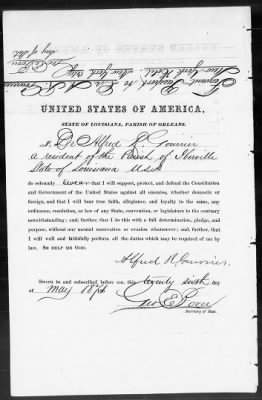 Forward Passport to Dr A. R. Gourrier
New York Hotel
New York City
UNITED STATES OF AMERICA,
STATE OF LOUISIANA, PARISH OF ORLEANS.
I, Dr Alfred R. Gourrier
a resident of the Parish of Iberville
State of Louisiana U.S.A
do solemnly swear that I will support, protect, and defend the Constitution and
Government of the United States against all enemies, whether domestic or
foreign, and that I will bear true faith, allegiance, and loyalty to the same, any
ordinance, resolution, or law of any State, convention, or legislature to the contrary
notwithstanding; and, further, that I do this with a full determination, pledge, and
purpose, without any mental reservation or evasion whatsoever; and, further, that
I will well and faithfully perform all the duties which may be required of me by
law. SO HELP ME GOD.
Alfred R Gourrier
Sworn to and subscribed before me, this twenty sixth day
of May 1874
Geo E
Secretary of State.